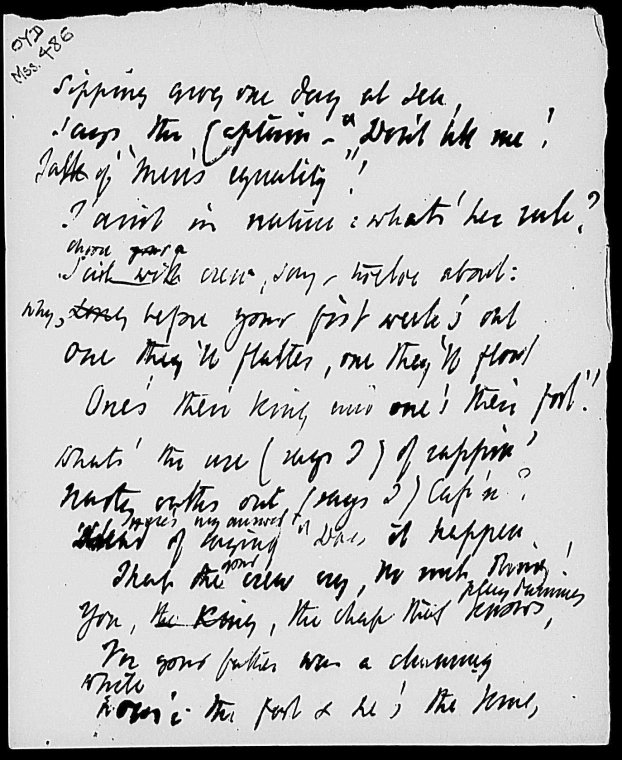 DYD
Mss. 486
Sipping grog one day at sea,
Says the Captain - "Don't tell me!
Talk of "men's equality"!
T'aint in nature: what's her rule?
choose a
Suit with crew, say, twelve about:
Why, before your first week's out
One they'll flatter, one they'll flout
One's their king and one's their fool."
What's the use (says I) of rappin'
Nasty oaths out (says I) Cap'n?
Here's my answer
of saying Does it happen
your
That the crew cry, "No such thing!
You, the King, the chap that
For your father was a
while
the fool & he's the same,